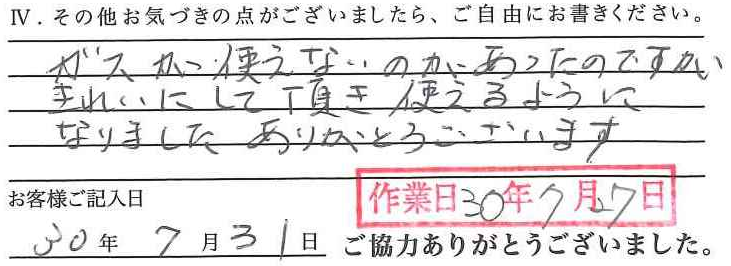 Ⅳ．その他お気づきの点がございましたら、ご自由にお書きください。
ガスがつ使えないのがあったのですが
きれいにして頂き使えるように
なりました ありがとうございます
お客様ご記入日
作業日30年7月27日
30年 7月31日 ご協力ありがとうございました。